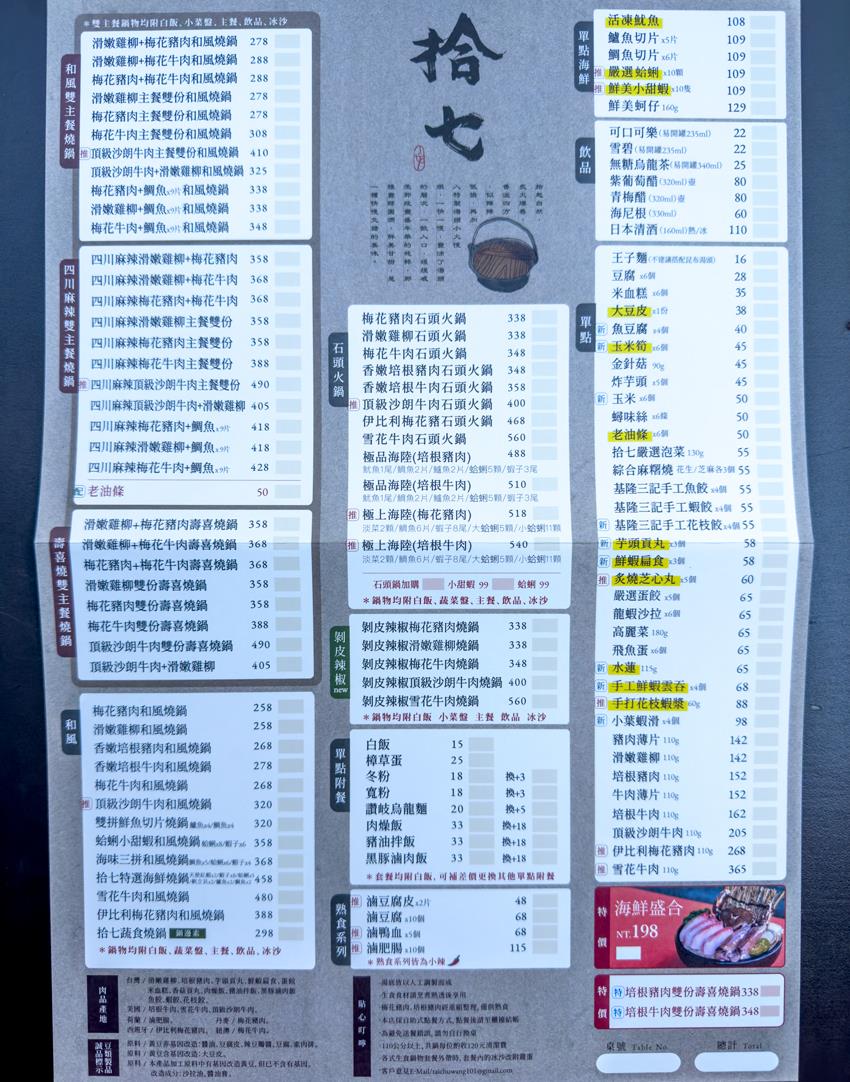 *雙主餐鍋物均附白飯、小菜盤、主餐、飲品、冰沙
和風雙主餐燒鍋
滑嫩雞柳+梅花豬肉和風燒鍋 278
滑嫩雞柳+梅花牛肉和風燒鍋 288
梅花豬肉+梅花牛肉和風燒鍋 288
滑嫩雞柳主餐雙份和風燒鍋 278
梅花豬肉主餐雙份和風燒鍋 278
梅花牛肉主餐雙份和風燒鍋 308
推 頂級沙朗牛肉主餐雙份和風燒鍋 410
頂級沙朗牛肉+滑嫩雞柳和風燒鍋 325
梅花豬肉+鯛魚x9片和風燒鍋 338
滑嫩雞柳+鯛魚x9片和風燒鍋 338
梅花牛肉+鯛魚x9片和風燒鍋 348
四川麻辣雙主餐燒鍋
四川麻辣滑嫩雞柳+梅花豬肉 358
四川麻辣滑嫩雞柳+梅花牛肉 368
四川麻辣梅花豬肉+梅花牛肉 368
四川麻辣滑嫩雞柳主餐雙份 358
四川麻辣梅花豬肉主餐雙份 358
四川麻辣梅花牛肉主餐雙份 388
推 四川麻辣頂級沙朗牛肉主餐雙份 490
四川麻辣頂級沙朗牛肉+滑嫩雞柳 405
四川麻辣梅花豬肉+鯛魚x9片 418
四川麻辣滑嫩雞柳+鯛魚x9片 418
四川麻辣梅花牛肉+鯛魚x9片 428
配 老油條 50
壽喜燒雙主餐燒鍋
滑嫩雞柳+梅花豬肉壽喜燒鍋 358
滑嫩雞柳+梅花牛肉壽喜燒鍋 368
梅花豬肉+梅花牛肉壽喜燒鍋 368
滑嫩雞柳雙份壽喜燒鍋 358
梅花豬肉雙份壽喜燒鍋 358
梅花牛肉雙份壽喜燒鍋 388
頂級沙朗牛肉雙份壽喜燒鍋 490
頂級沙朗牛肉+滑嫩雞柳 405
和風
梅花豬肉和風燒鍋 258
滑嫩雞柳和風燒鍋 258
香嫩培根豬肉和風燒鍋 268
香嫩培根牛肉和風燒鍋 278
梅花牛肉和風燒鍋 268
推 頂級沙朗牛肉和風燒鍋 320
雙拼鮮魚切片燒鍋 鱸魚x4/鯛魚x4 320
蛤蜊小甜蝦和風燒鍋 蛤蜊x8/蝦子x6 358
海味三拼和風燒鍋 鯛魚x5/蛤蜊x6/蝦子x4 368
拾七特選海鮮燒鍋 458
雪花牛肉和風燒鍋 480
伊比利梅花豬燒鍋 388
拾七蔬食燒鍋 鍋邊素 298
*鍋物均附白飯、蔬菜盤、主餐、飲品、冰沙
拾七
石頭火鍋
梅花豬肉石頭火鍋 338
滑嫩雞柳石頭火鍋 338
梅花牛肉石頭火鍋 348
香嫩培根豬肉石頭火鍋 348
香嫩培根牛肉石頭火鍋 358
推 頂級沙朗牛肉石頭火鍋 400
伊比利梅花豬石頭火鍋 468
雪花牛肉石頭火鍋 560
極品海陸(培根豬肉) 488
魷魚1尾/鯛魚2片/鱸魚2片/蛤蜊5顆/蝦子3尾
極品海陸(培根牛肉) 510
魷魚1尾/鯛魚2片/鱸魚2片/蛤蜊5顆/蝦子3尾
推 極上海陸(梅花豬肉) 518
淡菜2顆/鯛魚6片/蝦子8尾/大蛤蜊5顆/小蛤蜊11顆
推 極上海陸(培根牛肉) 540
淡菜2顆/鯛魚6片/蝦子8尾/大蛤蜊5顆/小蛤蜊11顆
石頭鍋加購 小甜蝦 99 蛤蜊 99
*鍋物均附白飯、蔬菜盤、主餐、飲品、冰沙
剝皮辣椒 new
剝皮辣椒梅花豬肉燒鍋 338
剝皮辣椒滑嫩雞柳燒鍋 338
剝皮辣椒梅花牛肉燒鍋 348
剝皮辣椒頂級沙朗牛肉燒鍋 400
剝皮辣椒雪花牛肉燒鍋 560
*鍋物均附白飯 小菜盤 主餐 飲品 冰沙
單點附餐
白飯 15
樟草蛋 25
冬粉 18 換+3
寬粉 18 換+3
讚岐烏龍麵 20 換+5
肉燥飯 33 換+18
豬油拌飯 33 換+18
黑豚滷肉飯 33 換+18
*套餐均附白飯,可補差價更換其他單點附餐
熟食系列
推 滷豆腐皮x2片 48
滷豆腐x10個 68
推 滷鴨血x5個 68
推 滷肥腸x10個 115
*熟食系列皆為小辣
單點海鮮
活凍魷魚 108
鱸魚切片x5片 109
鯛魚切片x6片 109
推 嚴選蛤蜊x10顆 109
推 鮮美小甜蝦x10隻 109
鮮美蚵仔160g 129
飲品
可口可樂(易開罐235ml) 22
雪碧(易開罐235ml) 22
無糖烏龍茶(易開罐340ml) 25
紫葡萄醋(320ml)壺 80
青梅醋(320ml)壺 80
海尼根(330ml) 60
日本清酒(160ml)熱/冰 110
單點
王子麵(不建議搭配昆布湯頭) 16
豆腐x6個 28
米血糕x6個 35
大豆皮x1份 38
新 魚豆腐x4個 40
新 玉米筍x6個 45
金針菇90g 45
炸芋頭x5個 45
新 玉米x6個 50
蟳味絲x6條 50
老油條x6個 50
拾七嚴選泡菜130g 55
綜合麻糬燒 花生/芝麻各3個 55
基隆三記手工魚餃x4個 55
基隆三記手工蝦餃x4個 55
新 基隆三記手工花枝餃x4個 55
新 芋頭貢丸x3個 58
新 鮮蝦扁食x3個 58
推 炙燒芝心丸x5個 60
嚴選蛋餃x5個 65
龍蝦沙拉x6個 65
高麗菜180g 65
飛魚蛋x6個 65
新 水蓮115g 65
新 手工鮮蝦雲吞x4個 68
推 手打花枝蝦漿60g 88
新 小葉蝦滑x4個 98
豬肉薄片110g 142
滑嫩雞柳110g 142
培根豬肉110g 152
牛肉薄片110g 152
培根牛肉110g 162
頂級沙朗牛肉110g 205
推 伊比利梅花豬肉110g 268
推 雪花牛肉110g 365
特價
海鮮盛合
NT.198
特價
特 培根豬肉雙份壽喜燒鍋338
特 培根牛肉雙份壽喜燒鍋348
桌號 Table No. 總計 Total
肉品產地
台灣/滑嫩雞柳、培根豬肉、芋頭貢丸、鮮蝦扁食、蛋餃
米血糕、香菇貢丸、肉燥飯、豬油拌飯、黑豚滷肉飯
魚餃、蝦餃、花枝餃、
美國/培根牛肉、雪花牛肉、頂級沙朗牛肉、
荷蘭/滷肥腸、 丹麥/梅花豬肉、
西班牙/伊比利梅花豬肉、 紐澳/梅花牛肉、
豆類製品誠品標示
原料/黃豆非基因改造:醬油、豆腐皮、辣豆瓣醬、豆腐、素肉排。
原料/黃豆含基因改造:大豆皮。
原料/本產品加工原料中有基因改造黃豆,但已不含有基因、
改造成分:沙拉油、醬油膏。
貼心叮嚀
·湯底皆以人工調製而成
·生食食材請烹煮熟透後享用
·梅花豬肉、培根豬肉經重組整理,僅供熟食
·本店採自助式點餐方式,點餐後請至櫃檯結帳
·為避免送餐錯誤,請勿自行換桌
·110公分以上,共鍋每位酌收120元清潔費
·各式生食鍋物套餐外帶時,套餐內的冰沙改附雞蛋
·客戶意見E-Mail/taichuwang101@gmail.com